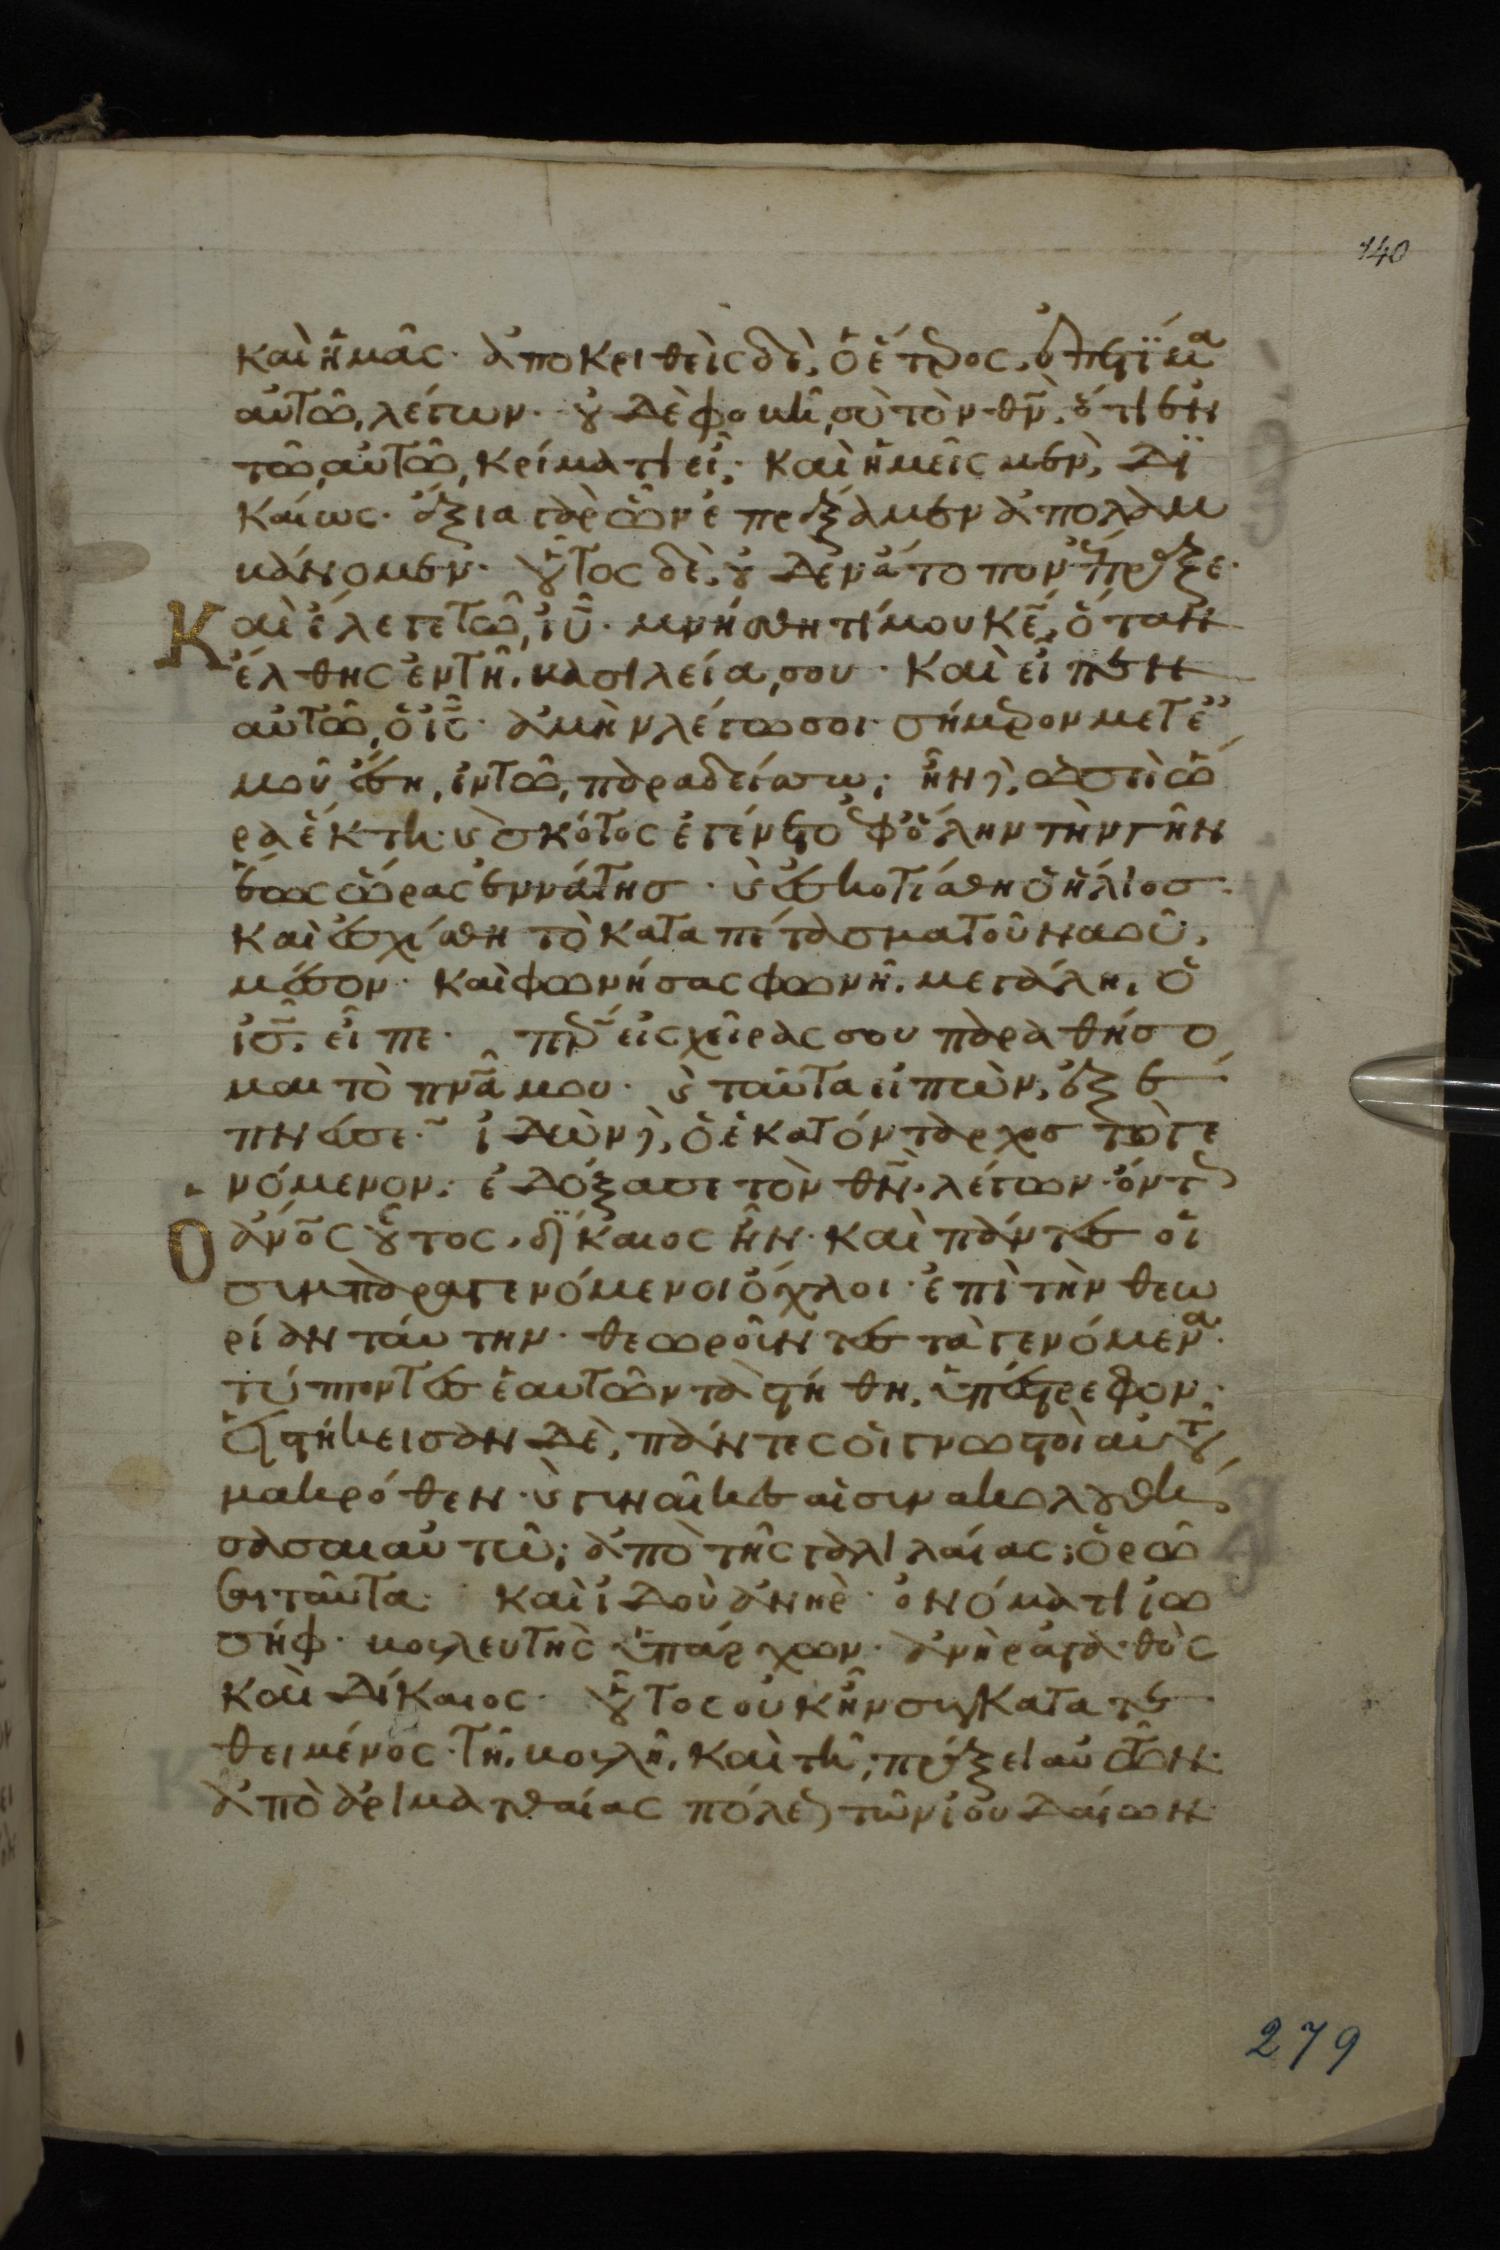 140
καὶ ἡμᾶς· ἀποκριθεὶς δὲ, ὁ ἕτερος, ἐπετίμα
αὐτῶ, λέγων· οὐδὲ φοβῆ, σὺ τὸν θν̅, ὅτι ἐν
τῶ, αὐτῶ, κρίματι εἶ; καὶ ἡμεῖς μὲν, δϊ
καίως· ἄξια γὰρ ὧν ἐπράξαμεν ἀπολαμ
βάνομεν· οὗτος δὲ, οὐδὲν ἄτοπον ἔπραξε·
Καὶ ἔλεγε τῶ, ἰυ̅· μνήσθητί μου κε̅, ὅταν
ἔλθης ἐν τῆ, βασιλεία, σου· Καὶ εἶπεν
αὐτῶ, ὁ ις̅· ἀμὴν λέγω σοι· σήμερον μετ' ἐ
μοῦ ἔση, ἐν τῶ, παραδείσω; ἦν δὲ, ὡσεὶ ὥ
ρα ἕκτη· καὶ σκότος ἐγένετο ἐφ' ὅλην τὴν γῆν
ἕως ὥρας ἐννάτης· καὶ ἐσκοτίσθη ὁ ἥλιος·
Καὶ ἐσχίσθη τὸ καταπέτασμα τοῦ ναοῦ,
μέσον· Καὶ φωνήσας φωνῆ, μεγάλη, ὁ
ις̅, εἶπε· περ̅ εἰς χεῖρας σου παραθήσο
μαι τὸ πνα̅ μου· καὶ ταῦτα εἰπὼν, ἐξέ
πνευσεν· ἰδὼν δὲ, ὁ ἑκατόνταρχος τὸ γε
νόμενον· ἐδόξασε τὸν θν̅· λέγων· ὄντως
ὁ ἀνο̅ς οὗτος, δίκαιος ἦν· Καὶ πάντες οἱ
συμπαραγενόμενοι ὄχλοι· ἐπὶ τὴν θεω
ρίαν ταύτην· θεωροῦντες τὰ γενόμενα·
τύπτοντες ἑαυτῶν τὰ στήθη, ὑπέστρεφον·
εἱστήκεισαν δὲ, πάντες οἱ γνωστοὶ αὐτοῦ,
μακρόθεν· καὶ γυναῖκες αἱ συνακολουθή
σασαι αὐτῶ; ἀπὸ τῆς γαλιλαίας; ὁρῶ
σαι ταῦτα· Καὶ ἰδοὺ ἀνὴρ· ὀνόματι ἰω
σήφ· βουλευτὴς ὑπάρχων· ἀνὴρ ἀγαθὸς
καὶ δίκαιος· οὗτος οὐκ ἦν συγκατατε
θειμένος· τῆ, βουλῆ, καὶ τῆ, πράξει αὐτῶν·
ἀπὸ ἀριμαθαίας πόλεως τῶν ἰουδαίων·
279